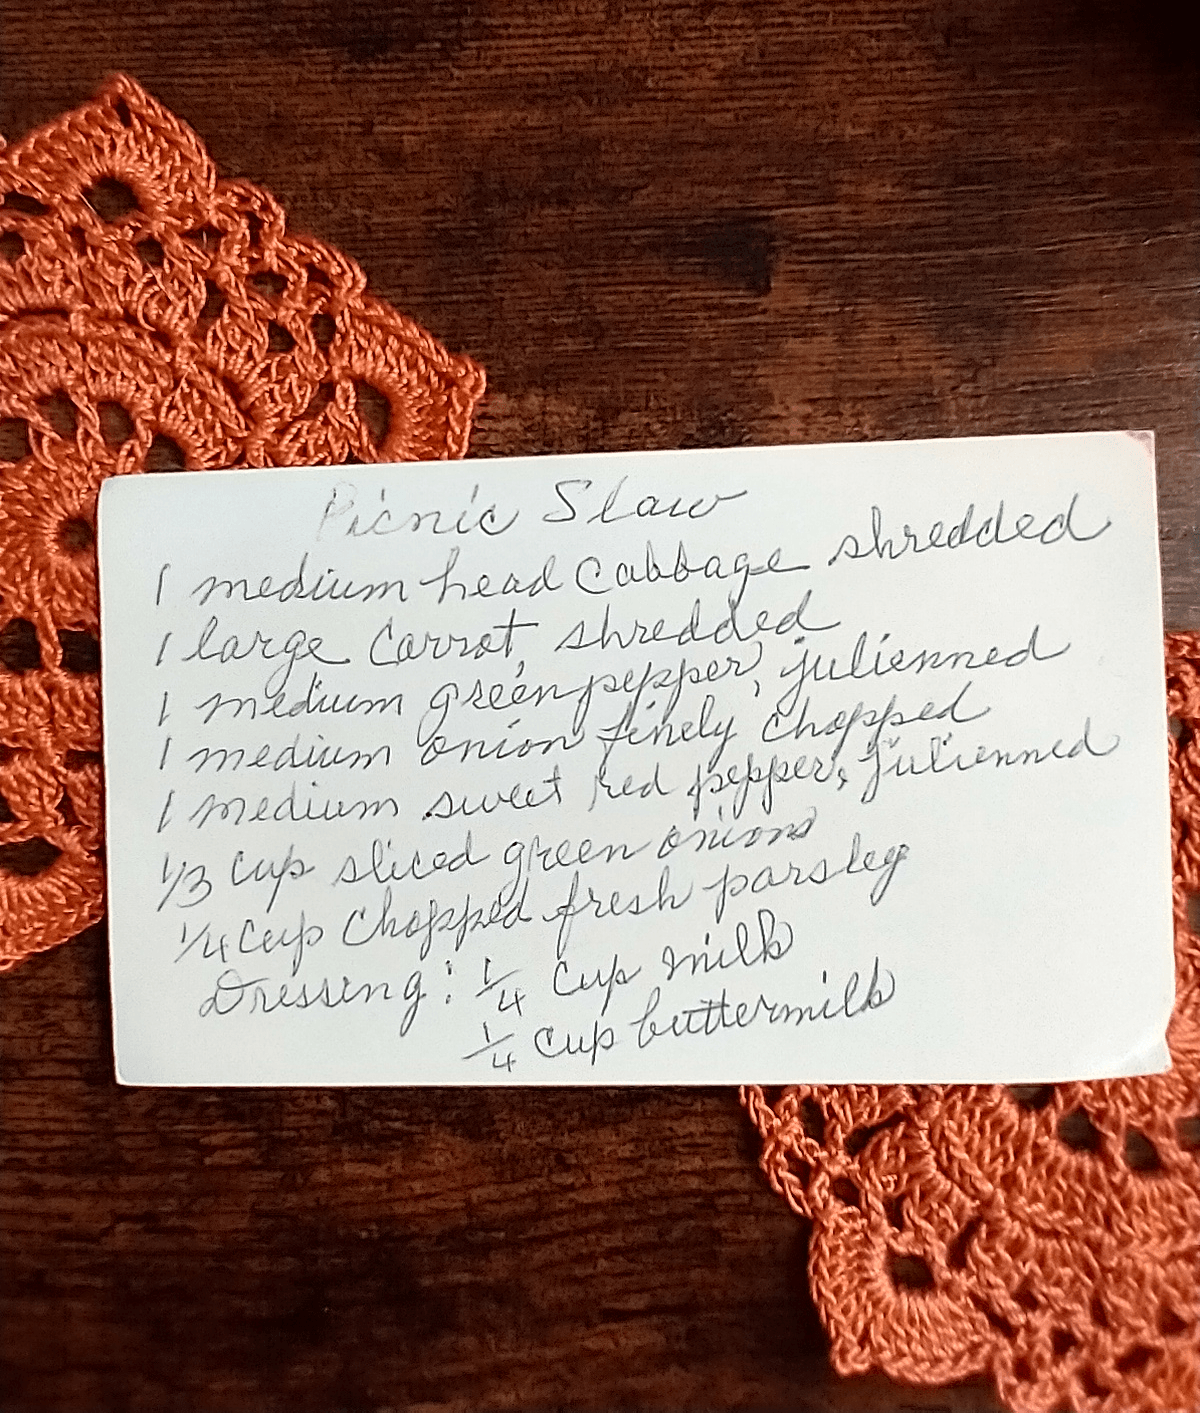 Picnic Slaw
1 medium head cabbage shredded
1 large carrot, shredded
1 medium green pepper, julienned
1 medium onion finely chopped
1 medium sweet red pepper, julienned
1/3 cup sliced green onions
1/4 cup chopped fresh parsley
Dressing: 1/4 cup milk
1/4 cup buttermilk